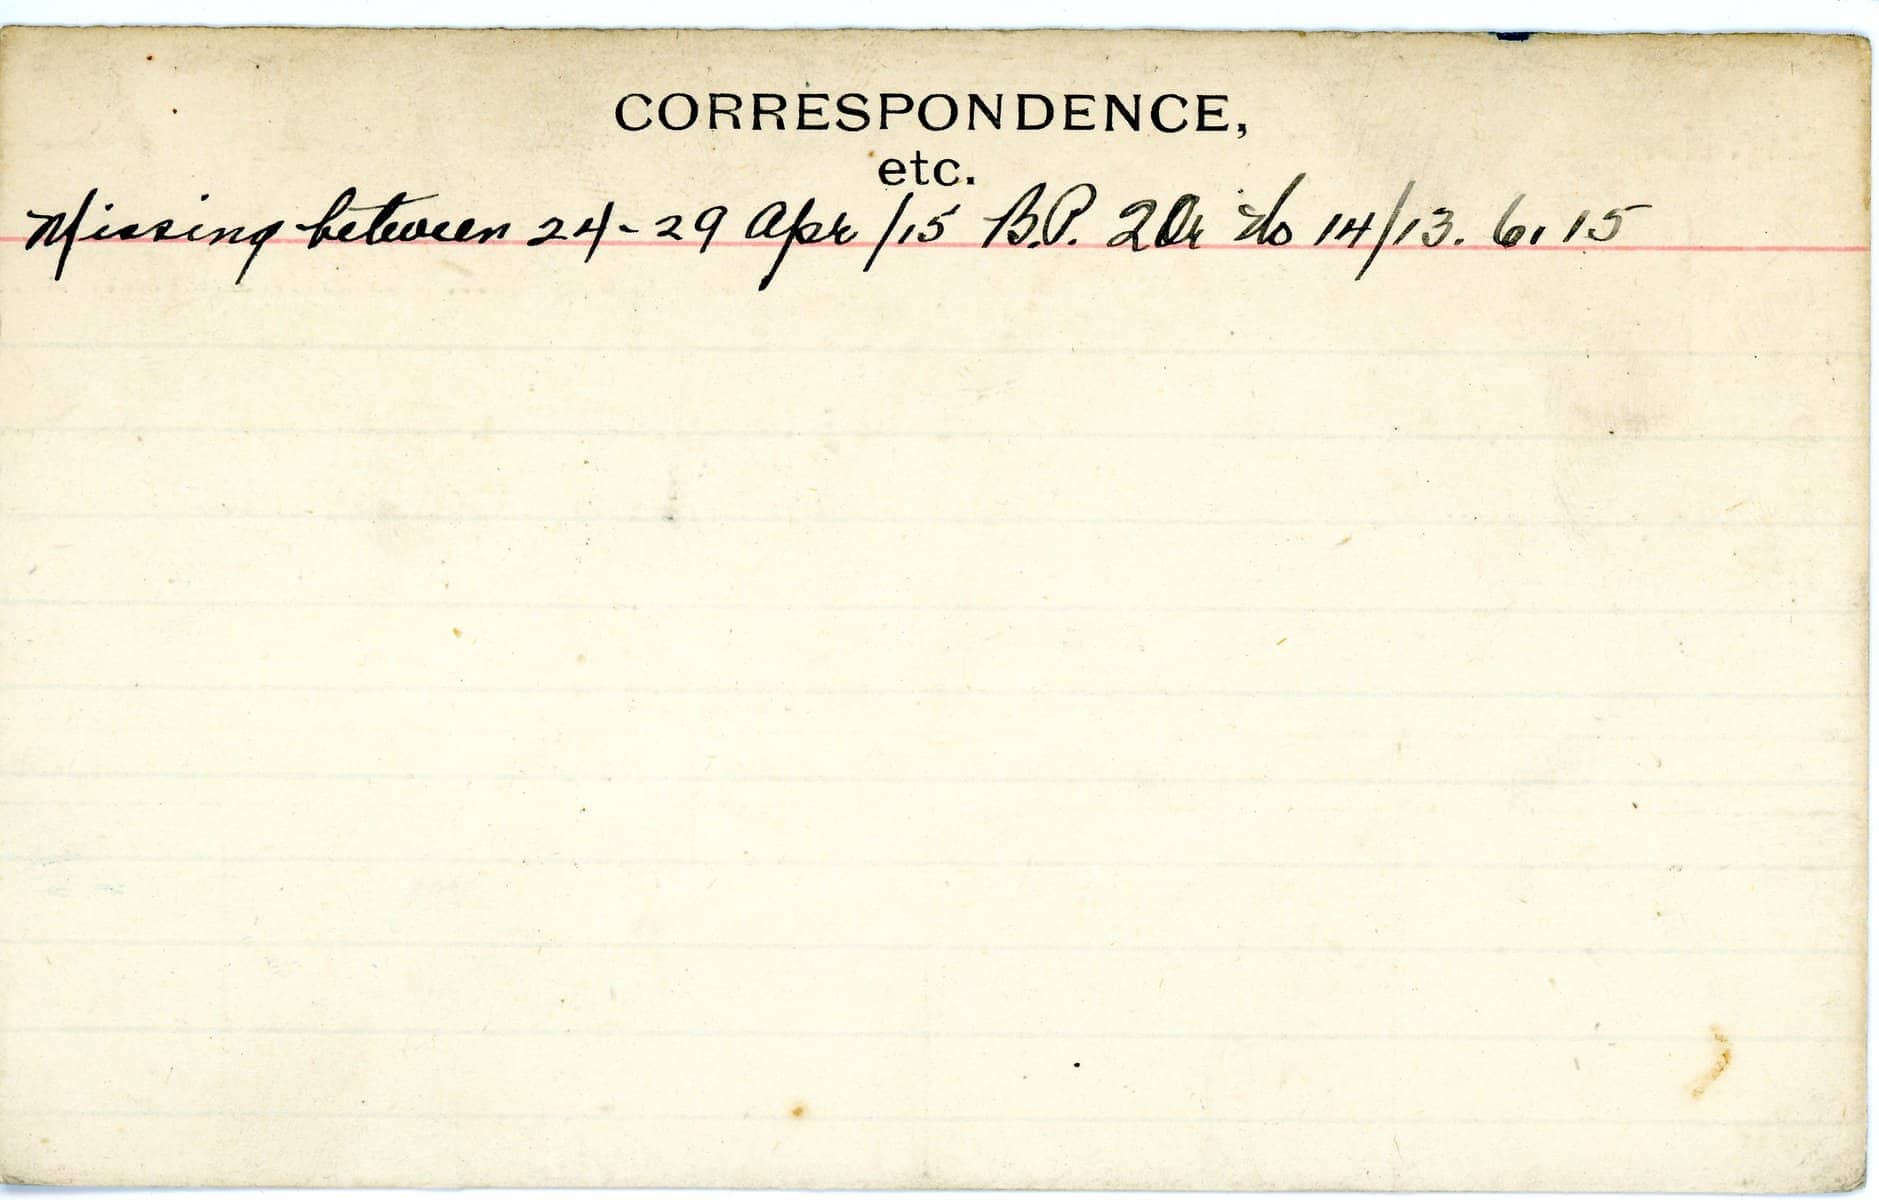 CORRESPONDENCE,
etc.
Missing between 24-29 Apr/15 B.P. 2 Or No 14/13. 6. 15